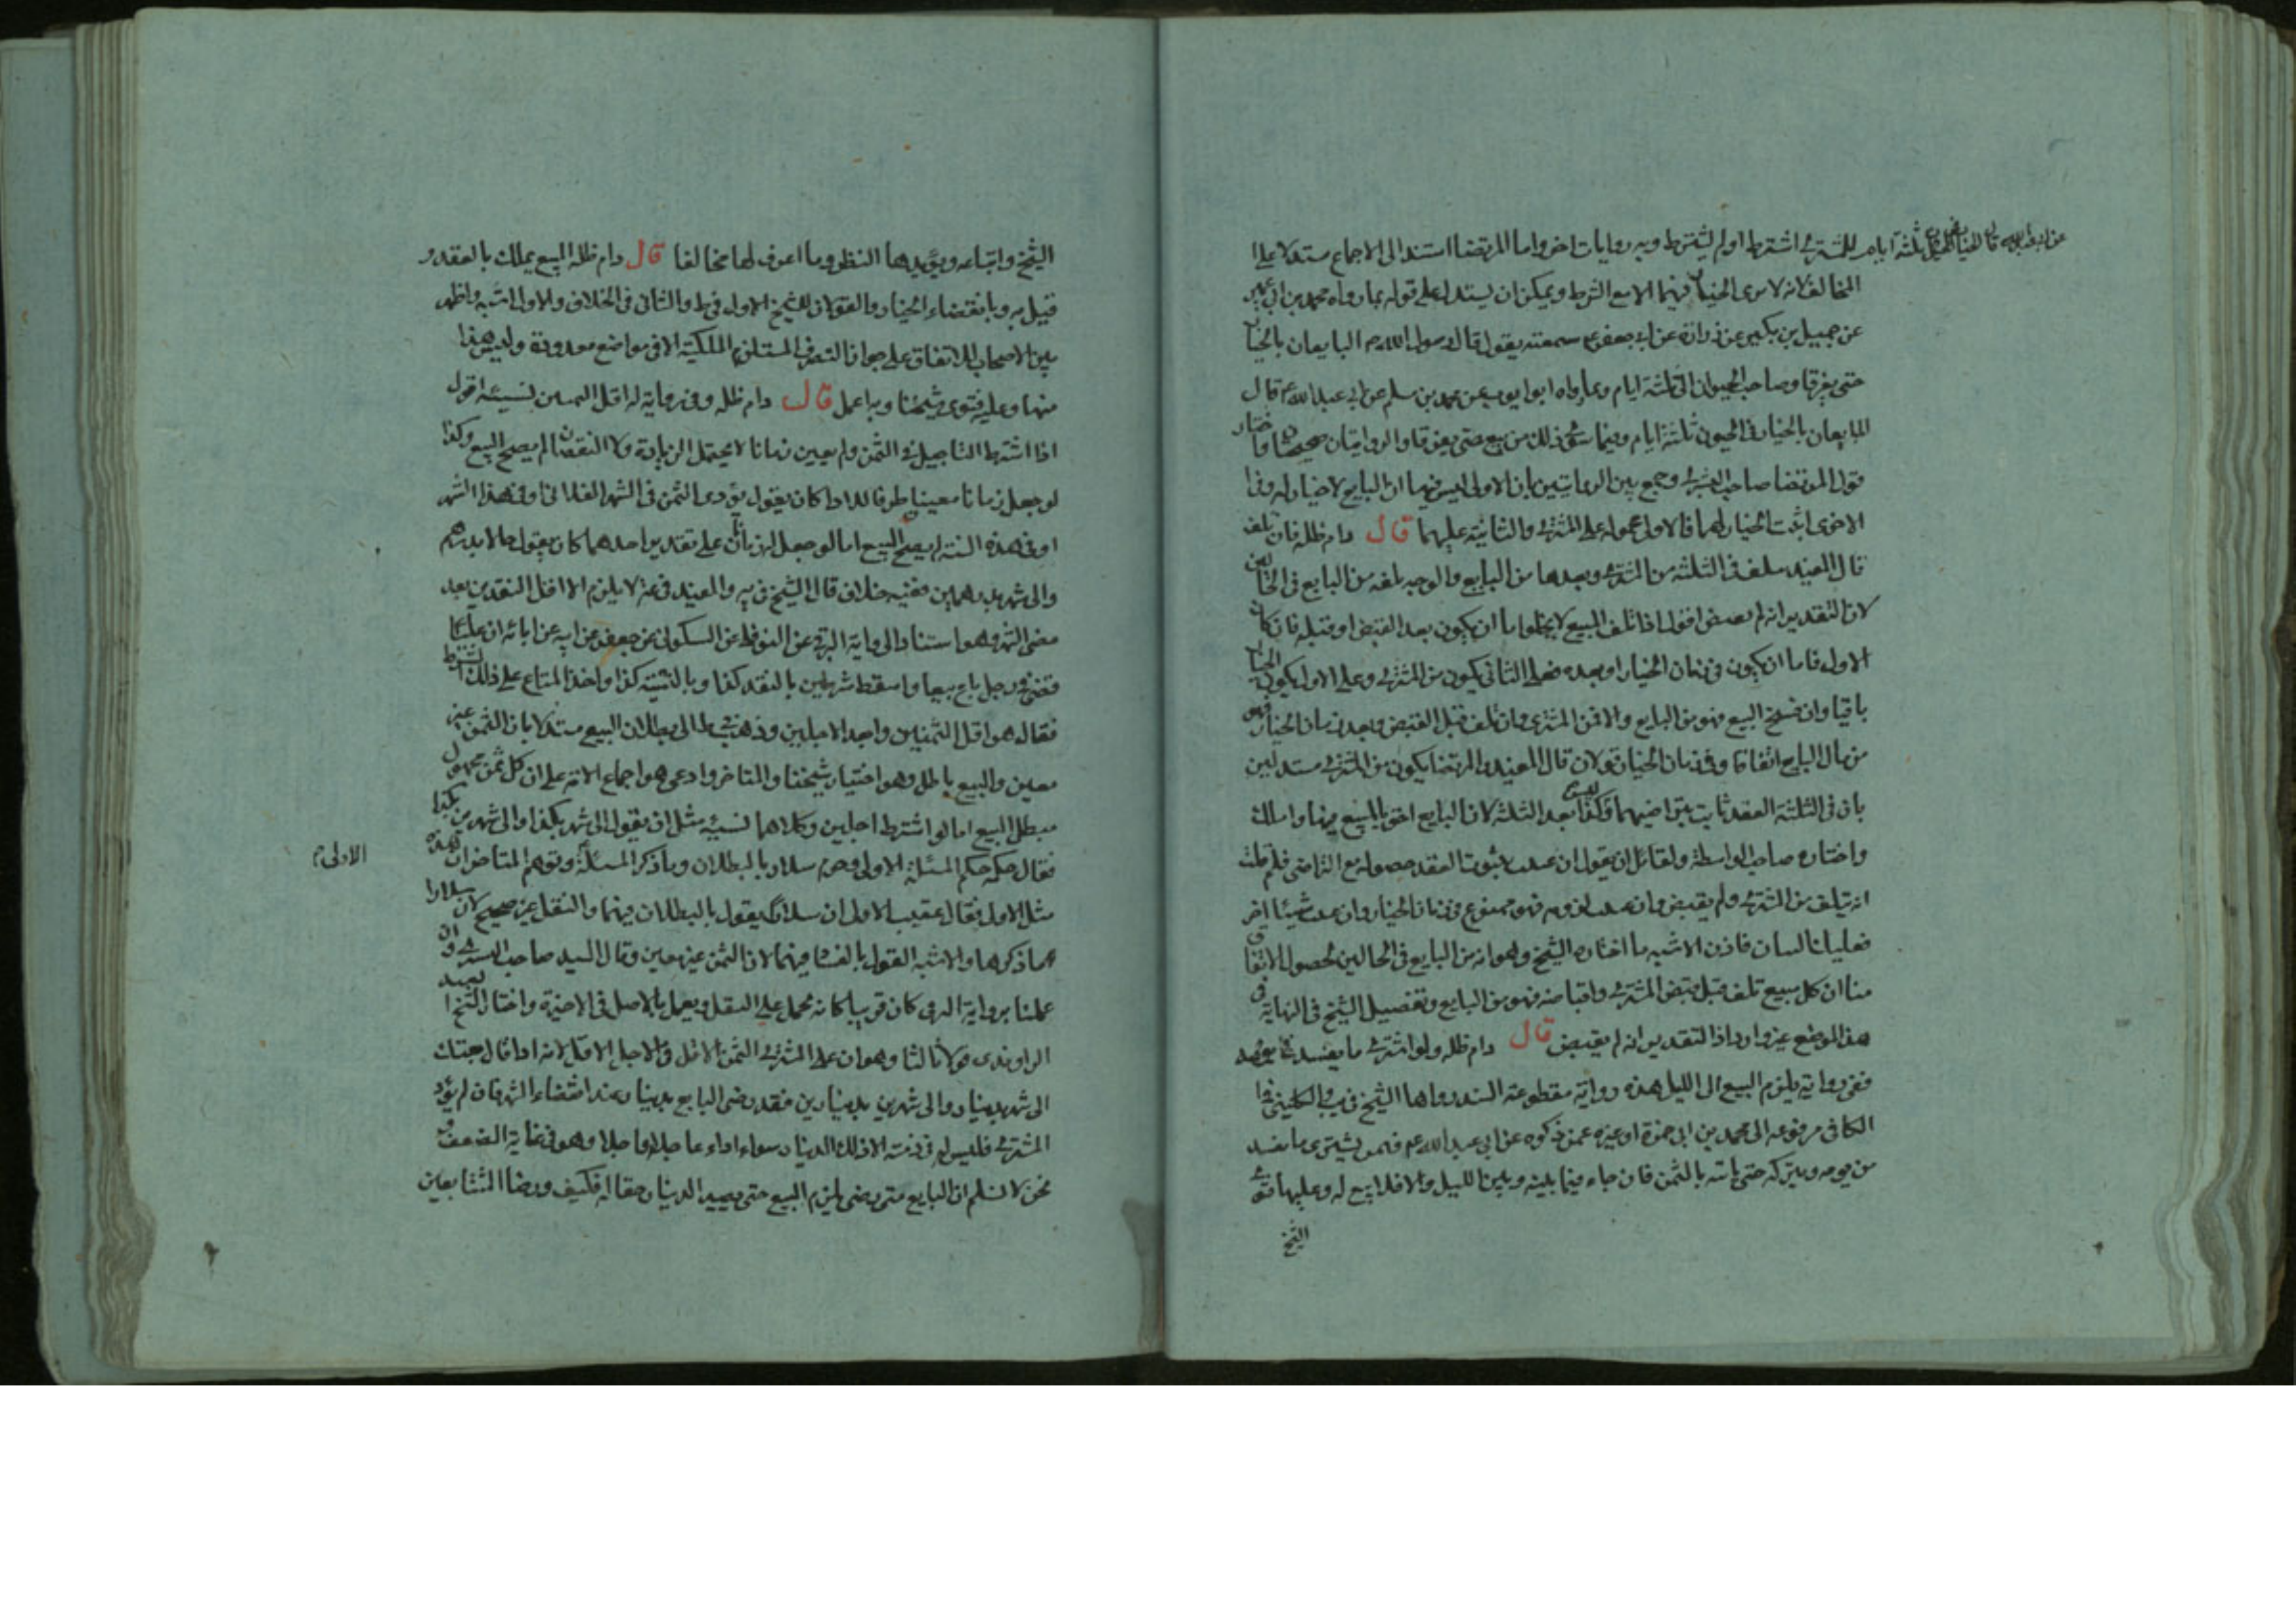 عن ابي عبد الله ع قال الخيار في الحيوان ثلثة ايام للمشتري اشترط او لم يشترط وبه روايات اخر واما المرتضى استند الى الاجماع مستدلا على
المخالف لانه لا يرى الخيار فيهما الا مع الشرط ويمكن ان يستدل على قوله بما رواه محمد بن ابي عمير
عن جميل بن بكير عن زرارة عن ابي جعفر ع سمعته يقول قال رسول الله ص البايعان بالخيار
حتى يفرقا وصاحب الحيوان الى ثلثة ايام وبما رواه ابو ايوب عن محمد بن مسلم عن ابي عبد الله ع قال
المبايعان بالخيار في الحيون ثلثة ايام وفيما سوى ذلك من بيع حتى يفرقا والروايتان صحيحتان واختار
قول المرتضا صاحب البشرى وجمع بين الروايتين بان الاولى ليس فيها ان البايع لا خيار له وفي
الاخرى اثبت الخيار لهما فالاولى محمولة على المشتري والثانية عليهما قال دام ظله فان تلف
قال المفيد تلف في الثلثة من المشتري وبعدها من البايع والوجه تلفه من البايع في الحالين
لان التقدير انه لم يقبض اقول اذا تلف المبيع لا يخلوا اما ان يكون بعد القبض او قبله فان كان
الاول فاما ان يكون في زمان الخيار او بعده فعلى الثاني يكون من المشتري وعلى الاول يكون الخيار
باقيا وان فسخ البيع فهو من البايع والا فمن المشتري وان تلف قبل القبض وبعد زمان الخيار فهو
من مال البايع اتفاقا وفي زمان الخيار قولان قال المفيد والمرتضا يكون من المشتري مستدلين
بان في الثلثة العقد ثابت بتراضيهما وكذا ليس بعد الثلثة لان البايع احق بالمبيع فيها واملك
واختاره صاحب الواسطة ولقائل ان يقول ان عنيت بثبوت العقد حصوله مع التراضي فلم قلت
انه يتلف من المشتري ولم يقبض وان عنيت لزومه فهو ممنوع في زمان الخيار وان عنيت شيئا اخر
فعليك البيان فاذن الاشبه ما اختاره الشيخ وهو انه من البايع في الحالين لحصول الاتفاق
منا ان كل مبيع تلف قبل قبض المشتري واقباضه فهو من البايع وتفصيل الشيخ في النهاية في
هذا الموضع غير وارد اذ التقدير انه لم يقبض قال دام ظله ولو اشترى ما يفسد من يومه
ففي رواية يلزم البيع الى الليل هذه رواية مقطوعة السند رواها الشيخ في يب والكليني في
الكافي مرفوعه الى محمد بن ابي حمزة او غيره عمن ذكره عن ابي عبد الله ع فيمن يشتري ما يفسد
من يومه ويتركه حتى ياتيه بالثمن فان جاء فيما بينه وبين الليل والا فلا بيع له وعليها فتوى
الشيخ
الشيخ واتباعه ويؤيدها النظر وما اعرف لها مخالفا قال دام ظله المبيع يملك بالعقد و
قيل به وبانقضاء الخيار والقولان للشيخ الاول في ط والثاني في الخلاف والاول اشبه واظهر
بين الاصحاب للاتفاق على جواز التصرف المستلزم للملكية الا في مواضع معدودة وليس هذا
منها وعليه فتوى شيخنا وبه اعمل قال دام ظله وفي رواية له اقل الثمنين نسيئة اقول
اذا اشترط التاجيل في الثمن ولم يعين زمانا لا يحتمل الزيادة ولا النقصان لم يصح البيع وكذا
لو جعل زمانا معينا ظرفا للاداء كان يقول يؤدي الثمن في الشهر الفلاني او في هذا الشهر
او في هذه السنة لم يصح البيع اما لو جعل له زمانان على تقدير احدهما كان يقول حالا بدرهم
والى شهر بدرهمين ففيه خلاف قال الشيخ في يه والمفيد في عه لا يلزم الا اقل النقدين بعد
مضي الشهر وهو استنادا الى رواية البرقي عن النوفلي عن السكوني عن جعفر عن ابيه عن ابائه ان عليا ع
قضى في رجل باع بيعا واسقط شرطين بالنقد كذا وبالنسيئة كذا واخذ المتاع على ذلك الشرط
فقال هو اقل الثمنين وابعد الاجلين وذهب في ط الى بطلان البيع مستدلا بان الثمن غير
معين والبيع باطل وهو اختيار شيخنا والمتاخر وادعى هو اجماع الامة على ان كل ثمن مجهول
مبطل البيع اما لو اشترط اجلين وكلاهما نسية مثل ان يقول الى شهر بكذا والى شهرين بكذا
فقال حكمه حكم المسئلة الاولى وجزم سلار بالبطلان وما ذكر المسئلة وتوهم المتاخر ان هذه
الاولى م
مثل الاولى فقال عقيب الاولى ان سلار يقول بالبطلان فيها والنقل غير صحيح لان سلارا
ما ذكرها والاشبه القول بالفساد فيهما لان الثمن غير معين وقال السيد صاحب البشرى وان
عملنا برواية البرقي كان قريبا كانه يحمل على النقل ويعمل بالاصل في الاخيرة واختار الشيخ سعيد
الراوندي قولا ثالثا وهو ان على المشتري الثمن الاقل والاجل الاقل لانه اذا قال بعتك
الى شهر بدينار والى شهرين بدينارين فقد رضي البايع بدينار عند انقضاء الشهر فان لم يؤد
المشتري فليس له في ذمته الا ذلك الدينار سواء اداه عاجلا او اجلا وهو في غاية الضعف و
نحن لا نسلم ان البايع متى رضي لزم البيع حتى يصير الدينار حقا له فكيف ورضا المتبايعين